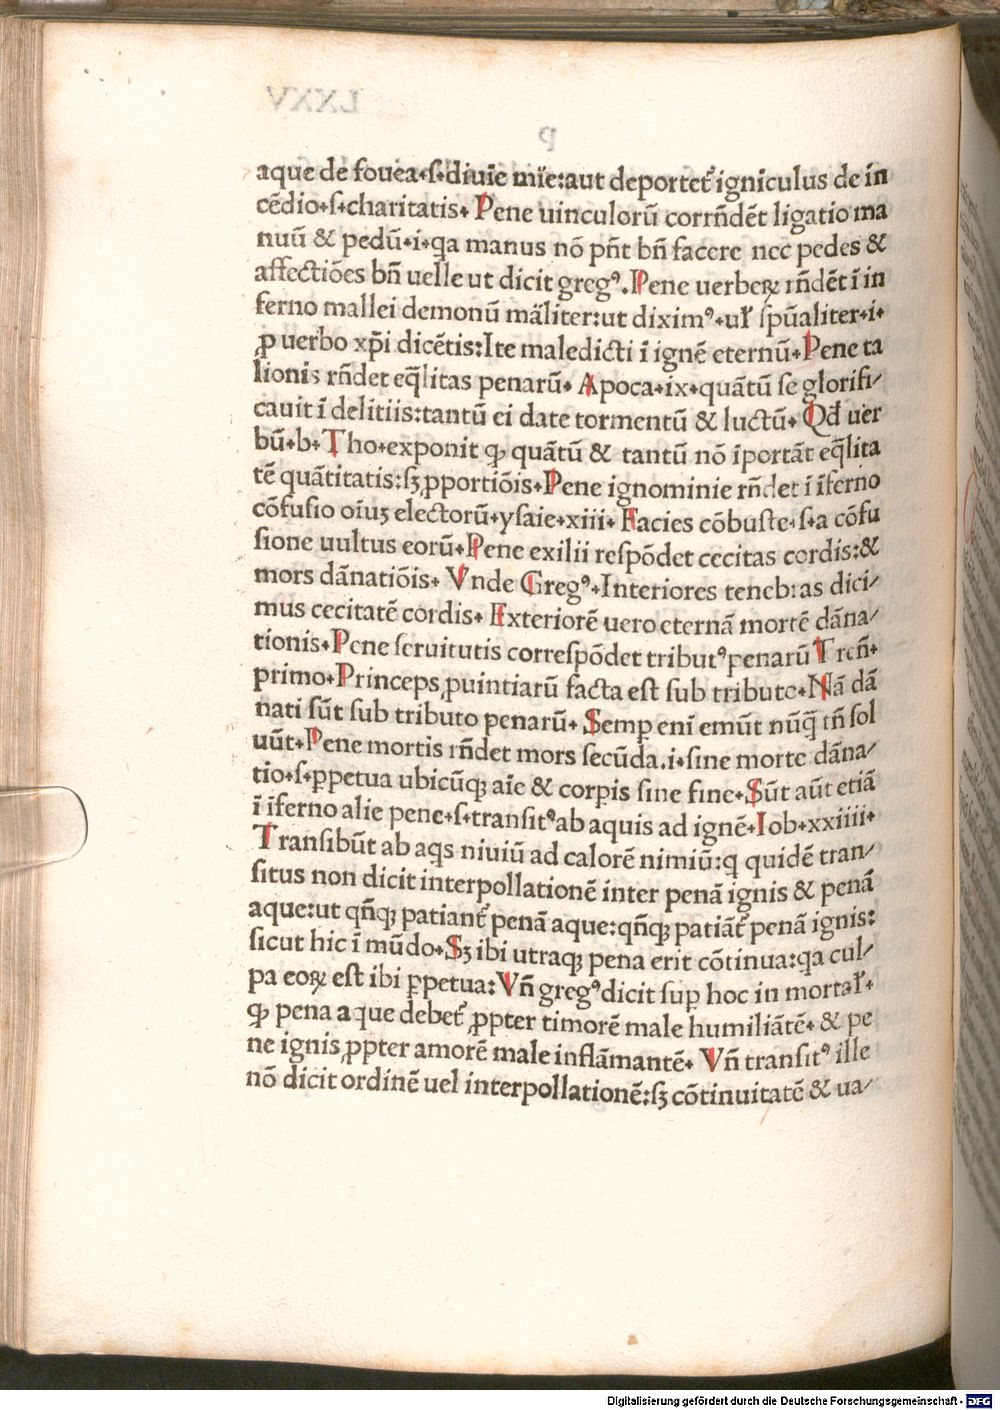 aque de fouea·ſ·diuīe mīe:aut deportet᷑ igniculus de īn
cēdio·ſ·charitatis· Pene uinculorū corrn̄dēt ligatio ma
nuū & pedū·i·qa manus nō pn̄t bn̄ facere nec pedes &
affectiōes bn̄ uelle ut dicit gregꝰ. Pene uerbeꝝ rn̄dēt ī in
ferno mallei demonū māliter:ut diximꝰ·ul᷑ ſpūaliter·i·
ꝓ uerbo xp̄i dicētis:Ite maledicti ī ignē eternū·Pene ta
lionis rn̄det eq̄litas penarū· Apoca·ix·quātū ſe glorifi/
cauit ī delitiis:tantū ei date tormentū & luctū· Qd̄ uer
bū·b·Tho·exponit ꝙ quātū & tantū nō īportāt eq̄lita
tē quātitatis:ſꝫ ꝓportiōis·Pene ignominie rn̄det ī īferno
cōfuſio oīuꝫ electorū·yſaie·xiii· Facies cōbuſte·ſ·a cōfu
ſione uultus eorū·Pene exilii reſpōdet cecitas cordis:&
mors dānatiōis· Vnde Gregꝰ·Interiores tenebras dici/
mus cecitatē cordis· Exteriorē uero eternā mortē dāna/
tionis·Pene ſeruitutis correſpōdet tributꝰ penarū Tren̄·
primo·Princeps ꝓuintiarū facta eſt ſub tributo·Nā dā
nati ſūt ſub tributo penarū· Semꝑ enī emūt nūq̄ tn̄ ſol
uūt·Pene mortis rn̄det mors ſecūda.i·ſine morte dāna/
tio·ſ·ꝑpetua ubicūqꝫ aīe & corpis ſine fine·Sūt aūt etiā
ī īferno alie pene·ſ·tranſitꝰ ab aquis ad ignē·Iob·xxiiii·
Tranſibūt ab aqs niuiū ad calorē nimiū:q quidē tran/
ſitus non dicit interpollationē inter penā ignis & penā
aque:ut qn̄qꝫ patiant᷑ penā aque:qn̄qꝫ patiāt᷑ penā ignis:
ſicut hic ī mūdo·Sꝫ ibi utraqꝫ pena erit cōtinua:qa cul/
pa eoꝝ eſt ibi ꝑpetua:Vn̄ gregꝰ dicit ſuꝑ hoc in moral᷑·
ꝙ pena aque debet᷑ ꝓpter timorē male humiliātē· & pe
ne ignis ꝓpter amorē male inflāmantē· Vn̄ tranſitꝰ ille
nō dicit ordinē uel interpollationē:ſꝫ cōtinuitatē & ua/
Digitalisierung gefördert durch die Deutsche Forschungsgemeinschaft - DFG